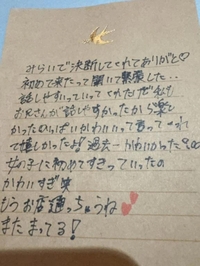 みらいで決断してくれてありがと♡
初めて来たって聞いて緊張した..
話しやすいっていってくれたけど私も
お兄さんが話しやすかったから楽し
かったいっぱいかわいいって言ってくれ
て嬉しかったよ！過去一かわいかった
女の子に初めてすきっていったの
かわいすぎ笑
もうお店通っちゃうね
またまってる！